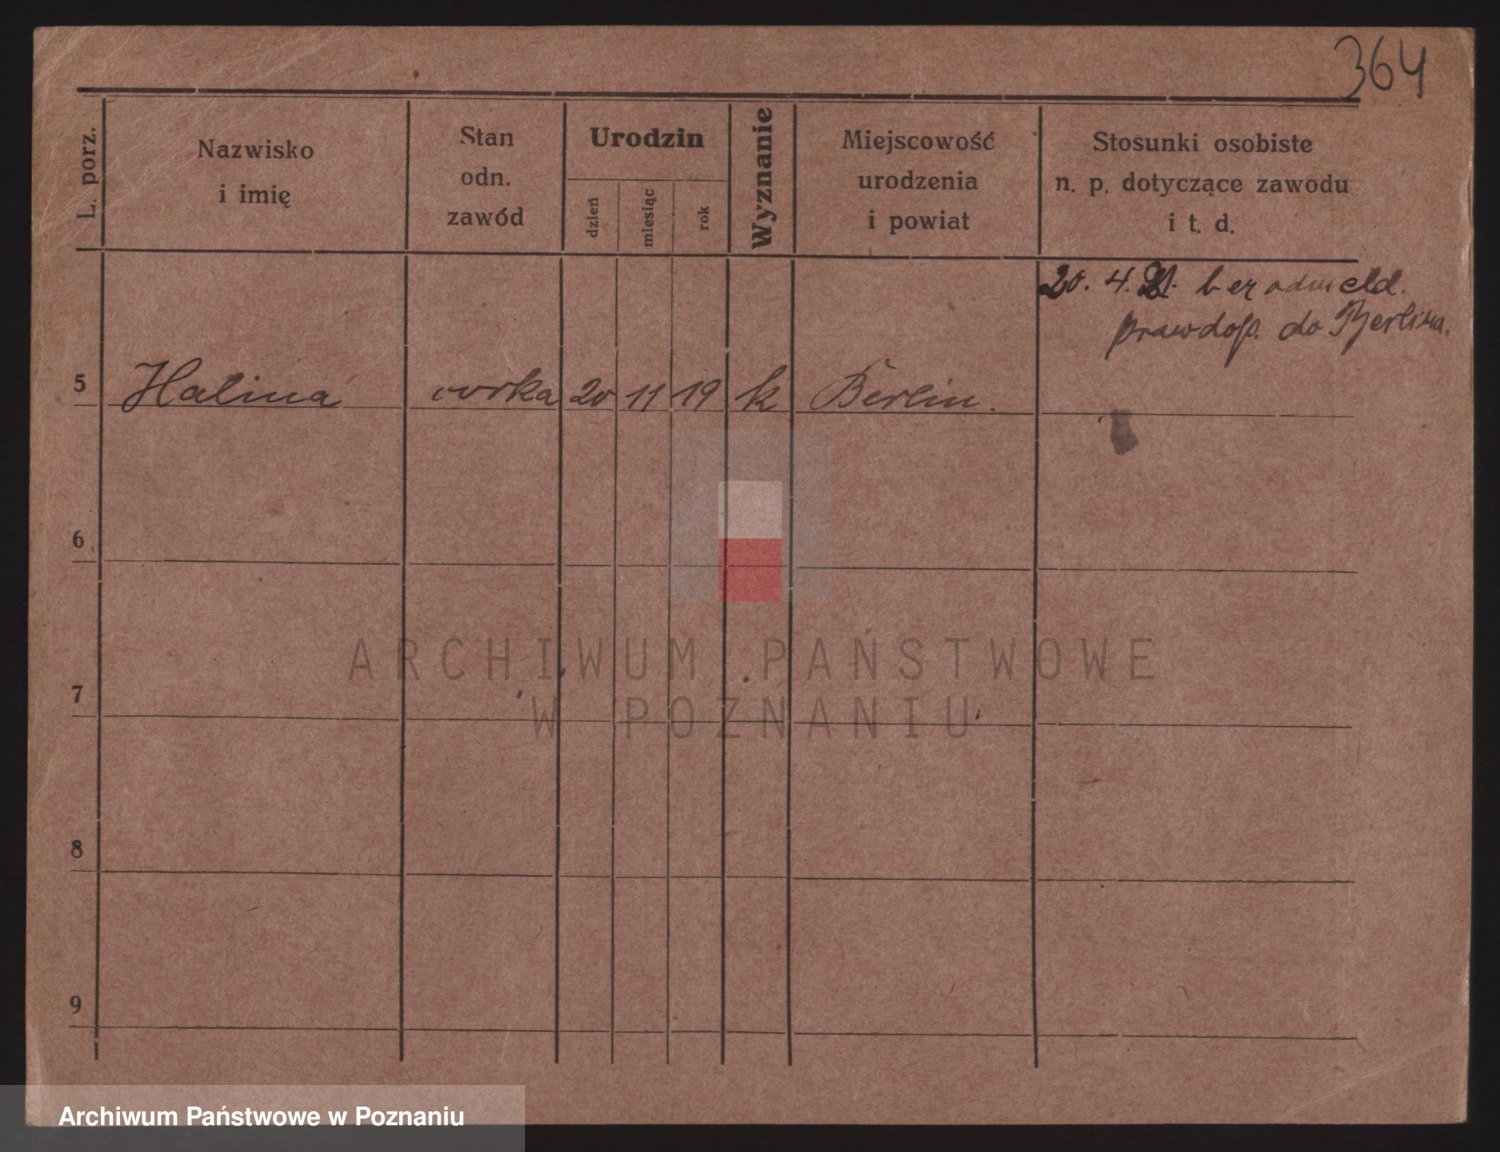 364
L. porz.
Nazwisko
i imię
Stan
odn.
zawód
Urodzin
dzień
miesiąc
rok
Wyznanie
Miejscowość
urodzenia
i powiat
Stosunki osobiste
n. p. dotyczące zawodu
i t. d.
20. 4. 21. bez odmeld.
prawdop. do Berlina.
5 Halina 20 11 19 k Berlin.
6
7
8
9
ARCHIWUM PAŃSTWOWE
W POZNANIU
Archiwum Państwowe w Poznaniu